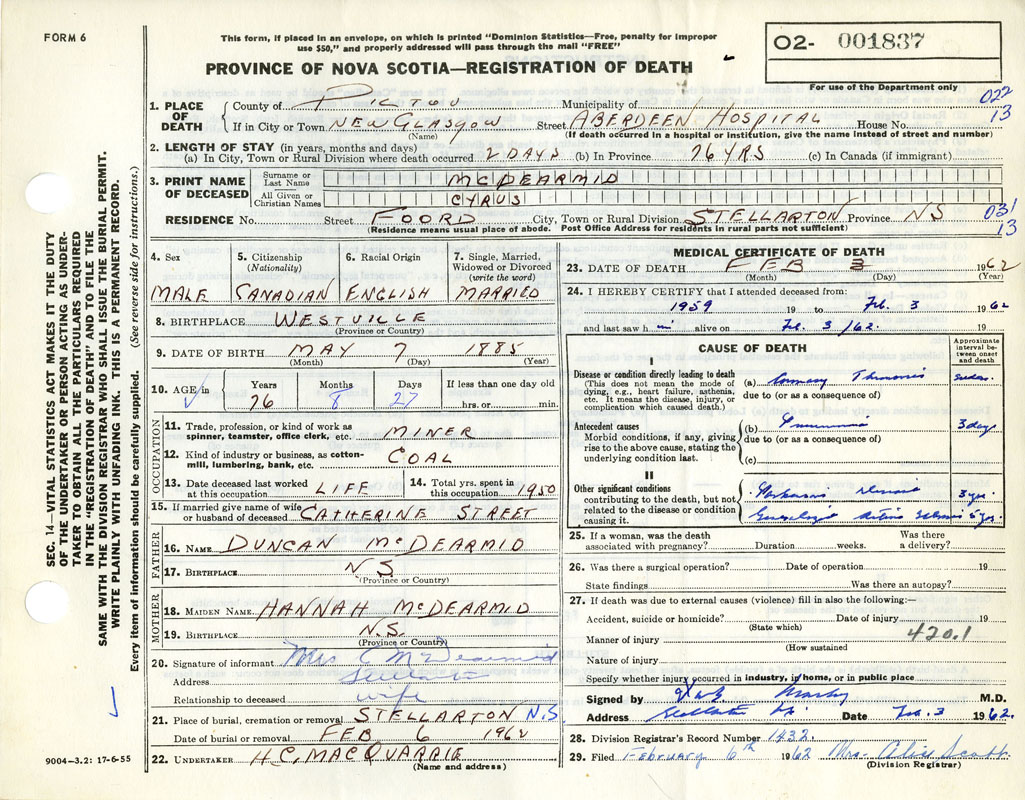 FORM 6
This form, if placed in an envelope, on which is printed "Dominion Statistics—Free, penalty for improper
use $50," and properly addressed will pass through the mail "FREE"
PROVINCE OF NOVA SCOTIA—REGISTRATION OF DEATH
02- 001837
For use of the Department only
022
13
1. PLACE OF DEATH
County of PICTOU Municipality of
If in City or Town NEW GLASGOW Street ABERDEEN HOSPITAL House No.
(Name) (If death occurred in a hospital or institution, give the name instead of street and number)
2. LENGTH OF STAY (in years, months and days)
(a) In City, Town or Rural Division where death occurred 2 DAYS (b) In Province 76 YRS (c) In Canada (if immigrant)
3. PRINT NAME OF DECEASED
Surname or Last Name MCDEARMID
All Given or Christian Names CYRUS
RESIDENCE No. Street FOORD City, Town or Rural Division STELLARTON Province NS
(Residence means usual place of abode. Post Office Address for residents in rural parts not sufficient)
031
13
4. Sex
MALE
5. Citizenship
(Nationality)
CANADIAN
6. Racial Origin
ENGLISH
7. Single, Married,
Widowed or Divorced
(write the word)
MARRIED
8. BIRTHPLACE WESTVILLE
(Province or Country)
9. DATE OF BIRTH MAY 7 1885
(Month) (Day) (Year)
10. AGE in
Years Months Days If less than one day old
76 8 27 hrs. or min.
OCCUPATION
11. Trade, profession, or kind of work as
spinner, teamster, office clerk, etc. MINER
12. Kind of industry or business, as cotton-
mill, lumbering, bank, etc. COAL
13. Date deceased last worked
at this occupation LIFE
14. Total yrs. spent in
this occupation 1950
15. If married give name of wife
or husband of deceased CATHERINE STREET
FATHER
16. NAME DUNCAN McDEARMID
17. BIRTHPLACE NS
(Province or Country)
MOTHER
18. MAIDEN NAME HANNAH McDEARMID
19. BIRTHPLACE N.S.
(Province or Country)
20. Signature of informant Mrs C McDearmid
Address Stellarton
Relationship to deceased wife
21. Place of burial, cremation or removal STELLARTON N.S
Date of burial or removal FEB 6 1962
22. UNDERTAKER H.C. MACQUARRIE
(Name and address)
MEDICAL CERTIFICATE OF DEATH
23. DATE OF DEATH FEB 3 1962
(Month) (Day) (Year)
24. I HEREBY CERTIFY that I attended deceased from:
1959 19 to Feb. 3 1962
and last saw h im alive on Feb. 3/62. 19
CAUSE OF DEATH
Approximate
interval be-
tween onset
and death
I
Disease or condition directly leading to death
(This does not mean the mode of
dying, e.g., heart failure, asthenia,
etc. It means the disease, injury, or
complication which caused death.)
(a) Coronary Thrombosis sudden
due to (or as a consequence of)
Antecedent causes
Morbid conditions, if any, giving
rise to the above cause, stating the
underlying condition last.
(b) Pneumonia 3 days
due to (or as a consequence of)
(c)
II
Other significant conditions
contributing to the death, but not
related to the disease or condition
causing it.
Parkinsons Disease 3 yrs.
25. If a woman, was the death
associated with pregnancy? Duration weeks. Was there
a delivery?
26. Was there a surgical operation? Date of operation 19
State findings Was there an autopsy?
27. If death was due to external causes (violence) fill in also the following:—
Accident, suicide or homicide? Date of injury 19
(State which)
Manner of injury 420.1
(How sustained
Nature of injury
Specify whether injury occurred in industry, in home, or in public place
Signed by M.D.
Address Stellarton NS. Date Feb. 3 1962.
28. Division Registrar's Record Number 1432.
29. Filed February 6th 1962 Mrs. Alice Scott
(Division Registrar)
SEC. 14—VITAL STATISTICS ACT MAKES IT THE DUTY
OF THE UNDERTAKER OR PERSON ACTING AS UNDER-
TAKER TO OBTAIN ALL THE PARTICULARS REQUIRED
IN THE "REGISTRATION OF DEATH" AND TO FILE THE
SAME WITH THE DIVISION REGISTRAR WHO SHALL ISSUE THE BURIAL PERMIT.
WRITE PLAINLY WITH UNFADING INK. THIS IS A PERMANENT RECORD.
Every item of information should be carefully supplied. (See reverse side for instructions.)
9004—3.2: 17-6-55